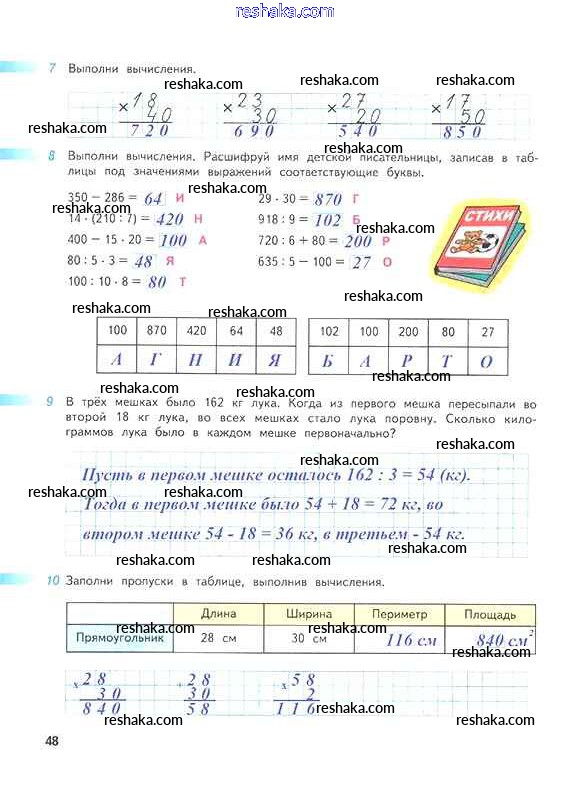 reshaka.com
7 Выполни вычисления.
reshaka.com reshaka.com reshaka.com reshaka.com
×18 ×23 ×27 ×17
40 30 20 50
720 690 540 850
reshaka.com reshaka.com reshaka.com
8 Выполни вычисления. Расшифруй имя детской писательницы, записав в таб-
лицы под значениями выражений соответствующие буквы.
reshaka.com reshaka.com
350 − 286 = 64 И 29 · 30 = 870 Г
reshaka.com
14 · (210 : 7) = 420 Н 918 : 9 = 102 Б
СТИХИ
400 − 15 · 20 = 100 А 720 : 6 + 80 = 200 Р
reshaka.com
80 : 5 · 3 = 48 Я 635 : 5 − 100 = 27 О
reshaka.com
100 : 10 · 8 = 80 Т
reshaka.com reshaka.com
100 870 420 64 48 102 100 200 80 27
А Г Н И Я Б А Р Т О
reshaka.com reshaka.com
9 В трёх мешках было 162 кг лука. Когда из первого мешка пересыпали во
второй 18 кг лука, во всех мешках стало лука поровну. Сколько кило-
граммов лука было в каждом мешке первоначально?
reshaka.com reshaka.com
Пусть в первом мешке осталось 162 : 3 = 54 (кг).
reshaka.com reshaka.com reshaka.com
Тогда в первом мешке было 54 + 18 = 72 кг, во
втором мешке 54 - 18 = 36 кг, в третьем - 54 кг.
reshaka.com reshaka.com
10 Заполни пропуски в таблице, выполнив вычисления.
reshaka.com reshaka.com
Длина Ширина Периметр Площадь
reshaka.com reshaka.com
Прямоугольник 28 см 30 см 116 см 840 см²
reshaka.com reshaka.com reshaka.com
×28 +28 ×58
30 30 2
840 58 116
reshaka.com reshaka.com reshaka.com reshaka.com
48